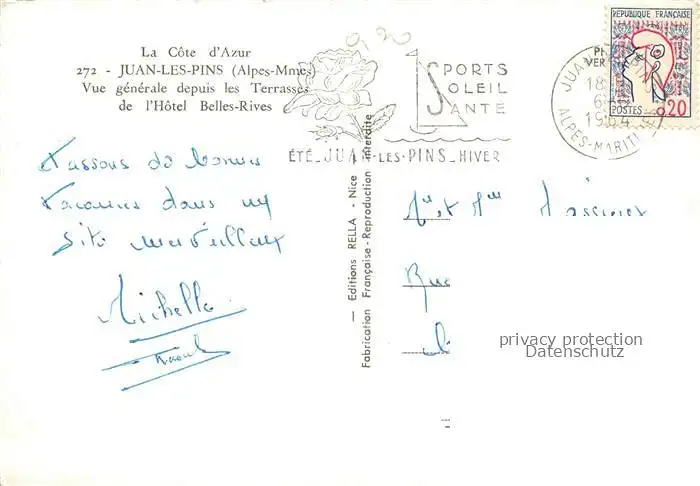 La Côte d'Azur
272 - JUAN-LES-PINS (Alpes-Mmes)
Vue générale depuis les Terrasses
de l'Hôtel Belles-Rives
SPORTS
SOLEIL
SANTE
ÉTÉ_JUAN-LES-PINS_HIVER
REPUBLIQUE FRANÇAISE
POSTES 0,20
JUAN PINS
18
6
1964
ALPES-MARIT
Passons de bonnes
Vacances dans un
site merveilleux
Michelle
Raoul
— Editions RELLA - Nice
Fabrication Française - Reproduction Interdite
Mr et Mme
Rue
privacy protection
Datenschutz